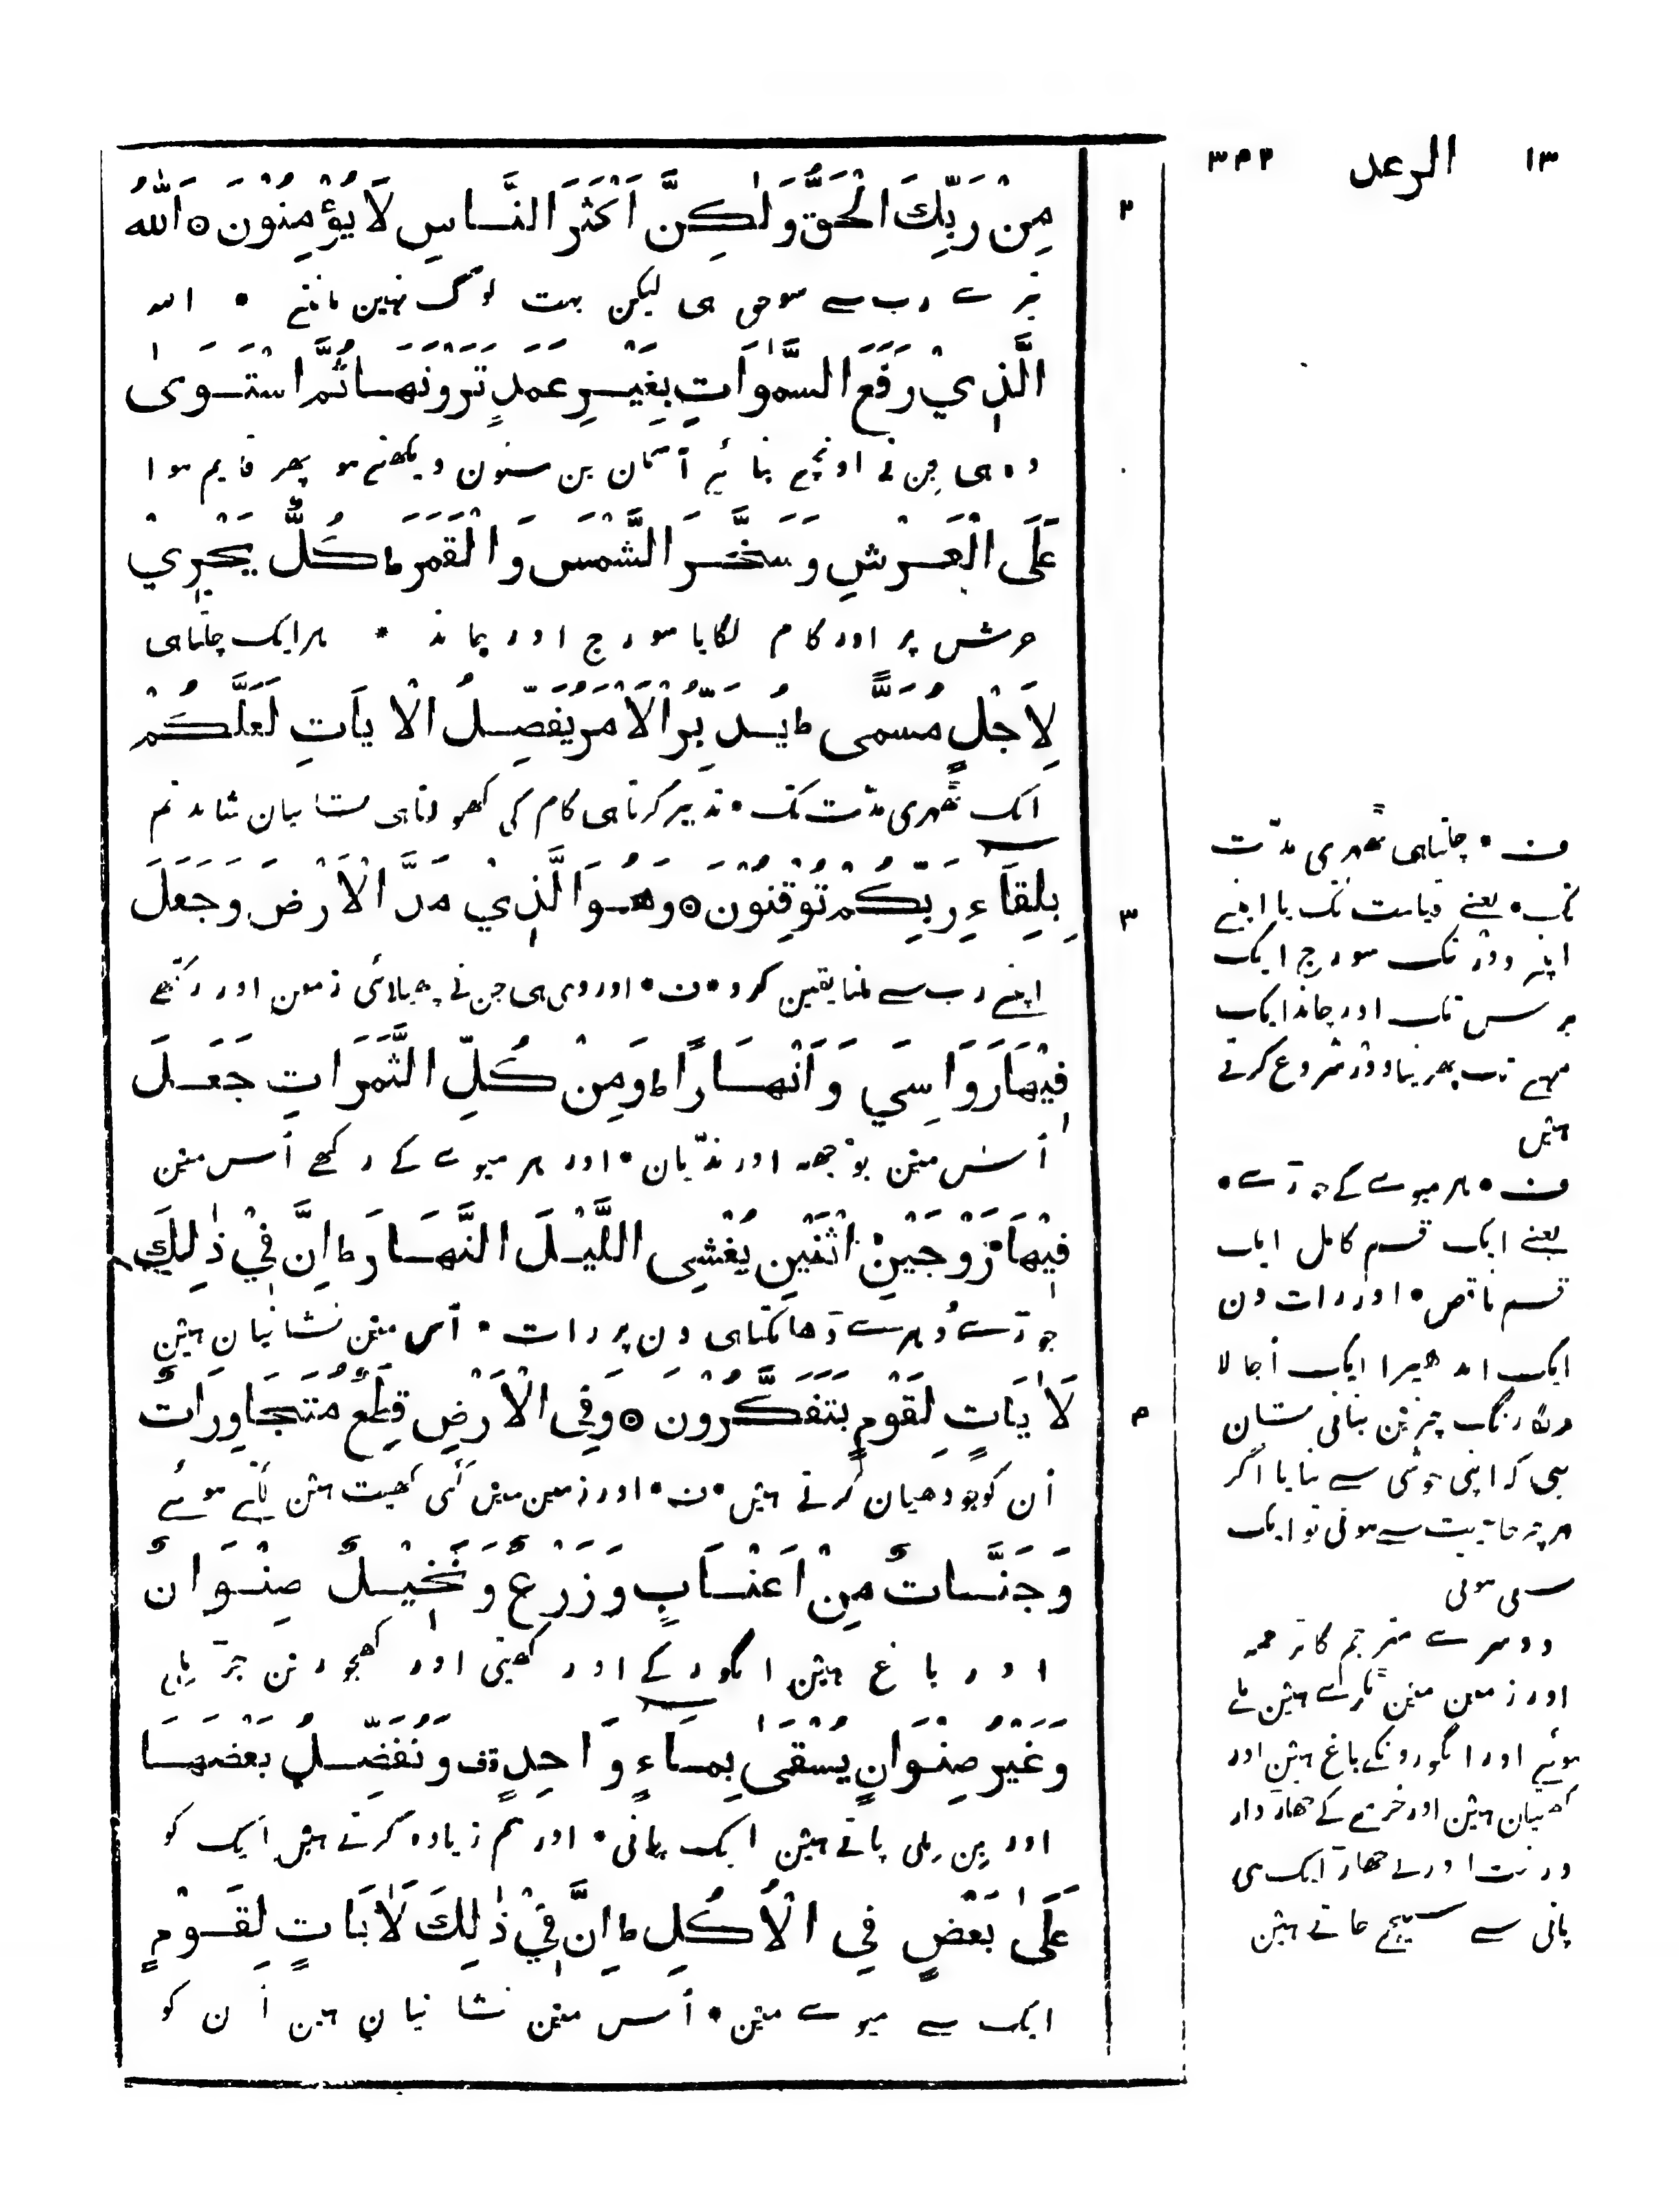 ١٣ الرعد ٣٤٢
مِنْ رَبِّكَ الْحَقُّ وَلٰكِنَّ اَكْثَرَ النَّاسِ لَا يُؤْمِنُوْنَ ۞ اَللّٰهُ
٢
تیرے رب سے سو حق ہی لیکن بہت لوگ نہین مانتے • اللہ
الَّذِيْ رَفَعَ السَّمٰوَاتِ بِغَيْرِ عَمَدٍ تَرَوْنَهَا ثُمَّ اسْتَوٰى
وہ ہی جن نے اونچے بنائے آسمان بن ستون دیکھتے ہو پھر قایم ہوا
عَلَى الْعَرْشِ وَسَخَّرَ الشَّمْسَ وَالْقَمَرَ ط كُلٌّ يَجْرِيْ
عرش پر اور کام لگایا سورج اور چاند * ہر ایک چلتا ہی
لِاَجَلٍ مُسَمًّى ط يُدَبِّرُ الْاَمْرَ يُفَصِّلُ الْاٰيَاتِ لَعَلَّكُمْ
ایک ٹھہری مدّت تک • تدبیر کرتا ہی کام کی کھولتا ہی نشانیان شاید تم
بِلِقَاءِ رَبِّكُمْ تُوْقِنُوْنَ ۞ وَهُوَ الَّذِيْ مَدَّ الْاَرْضَ وَجَعَلَ
٣
اپنے رب سے ملنا یقین کرو • ف • اور وہی ہی جن نے پھیلائی زمین اور رکھے
فِيْهَا رَوَاسِيَ وَاَنْهَارًا ط وَمِنْ كُلِّ الثَّمَرَاتِ جَعَلَ
اُس مین بوجھ اور ندّیان • اور ہر میوے کے رکھے اُس مین
فِيْهَا زَوْجَيْنِ اثْنَيْنِ يُغْشِى اللَّيْلَ النَّهَارَ ط اِنَّ فِيْ ذٰلِكَ
جوڑے دُہرے ڈھانکتا ہی دن پر رات • اُس مین نشانیان ہین
لَاٰيَاتٍ لِقَوْمٍ يَتَفَكَّرُوْنَ ۞ وَفِى الْاَرْضِ قِطَعٌ مُتَجَاوِرَاتٌ
٤
اُن کو جو دھیان کرتے ہین • ف • اور زمین مین کئی کھیت ہین لگے ہوئے
وَجَنَّاتٌ مِنْ اَعْنَابٍ وَزَرْعٌ وَنَخِيْلٌ صِنْوَانٌ
اور باغ ہین انگور کے اور کھیتی اور کھجورین جڑ ملی
وَغَيْرُ صِنْوَانٍ يُسْقٰى بِمَاءٍ وَاحِدٍ قف وَنُفَضِّلُ بَعْضَهَا
اور بِن ملی پاتے ہین ایک پانی • اور ہم زیادہ کرتے ہین ایک کو
عَلٰى بَعْضٍ فِى الْاُكُلِ ط اِنَّ فِيْ ذٰلِكَ لَاٰيَاتٍ لِقَوْمٍ
ایک سے میوے مین • اُس مین نشانیان ہین اُن کو
ف • چلتا ہی ٹھہری مدّت
تک • یعنے قیامت تک یا اپنے
اپنے دور تک سورج ایک
برس تک اور چاند ایک
مہینے تب پھر نیا دور شروع کرتے
ہین
ف • ہر میوے کے جوڑے •
یعنے ایک قسم کامل ایک
قسم ناقص • اور رات دن
ایک اندھیرا ایک اُجالا
رنگ چیزین بنانی نشان
ہی کہ اپنی خوشی سے بنایا اگر
ہر چیز خاصیت سے ہوتی تو ایک
سی ہوتی
دوسرے مترجم کا ترجمہ
اور زمین مین ٹکڑے ہین ملے
ہوئے اور انگورونکے باغ ہین اور
کھیتیان ہین اور خرمے کے جھاڑ دار
درخت اور بے جھاڑ ایک ہی
پانی سے سینچے جاتے ہین